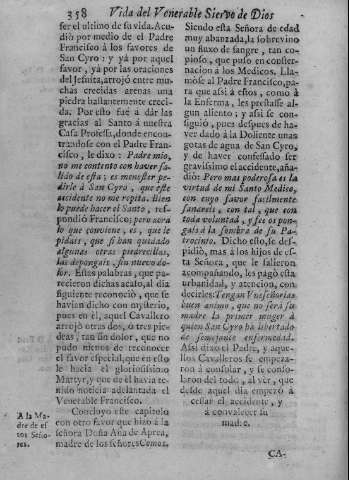 358 Vida del Venerable Siervo de Dios
ser el ultimo de su vida. Acu-
dió por medio de el Padre
Francisco à los favores de
San Cyro; y yà por aquel
favor, yà por las oraciones
del Jesuita, arrojó entre mu-
chas crecidas arenas una
piedra bastantemente creci-
da. Por esto fuè à dàr las
gracias al Santo à nuestra
Casa Professa, donde encon-
trandose con el Padre Fran-
cisco, le dixo: Padre mio,
no me contento con haver sa-
lido de esta; es menester pe-
dirle à San Cyro, que este
accidente no me repita. Bien
lo puede hacer el Santo, res-
pondió Francisco; pero aora
lo que conviene, es, que le
pidais, que si han quedado
algunas otras piedrecillas,
las depongais, sin nuevo do-
lor. Estas palabras, que pa-
recieron dichas acaso, al dia
siguiente reconoció, que se
havian dicho con mysterio,
pues en èl, aquel Cavallero
arrojó otras dos, ò tres pie-
dras, tan sin dolor, que no
pudo menos de reconocer
el favor especial, que en esto
le hacia el gloriosissimo
Martyr, y que de èl havia te-
nido noticia adelantada el
Venerable Francisco.
Concluyo este capitulo
con otro favor que hizo à la
señora Doña Ana de Aprea,
madre de los señores Comas.
A la Ma-
dre de es-
tos Seño-
res.
Siendo esta Señora de edad
muy abanzada, la sobrevino
un fluxo de sangre, tan co-
pioso, que puso en conster-
nacion à los Medicos. Lla-
móse al Padre Francisco, pa-
ra que assi à estos, como à
la Enferma, les prestasse al-
gun aliento; y assi se con-
siguió, pues despues de ha-
ver dado à la Doliente unas
gotas de agua de San Cyro,
y de haver confessado ser
gravissimo el accidente, aña-
dió: Pero mas poderosa es la
virtud de mi Santo Medico,
con cuyo favor facilmente
sanareis, con tal, que con
toda voluntad, y fee os pon-
gais à la sombra de su Pa-
trocinio. Dicho esto, se des-
pidió, mas à los hijos de es-
ta Señora, que le salieron
acompañando, les pagó esta
urbanidad, y atencion, con
decirles: Tengan Vueseñorias
buen animo, que no serà su
madre la primer muger à
quien San Cyro ha libertado
de semejante enfermedad.
Assi dixo el Padre, y aque-
llos Cavalleros se empeza-
ron à consolar, y se conso-
laron del todo, al vèr, que
desde aquel dia empezó à
cessar el accidente, y
à convalecer su
madre.
CA-